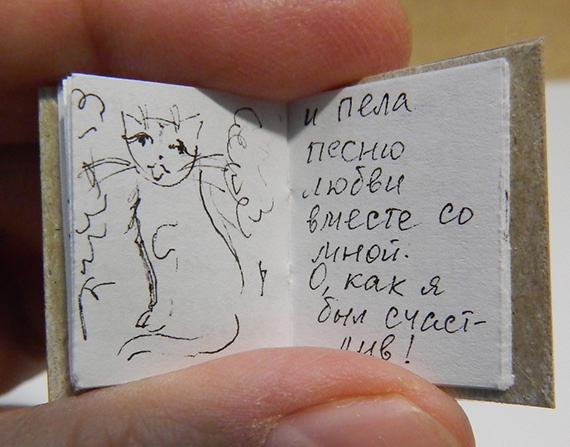 и пела
песню
любви
вместе со
мной.
О, как я
был счаст-
лив!